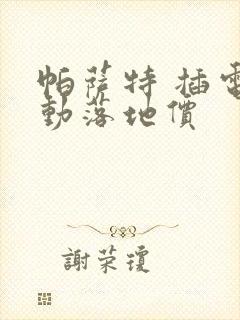 帕萨特 插電
動落地價
謝荣瓊